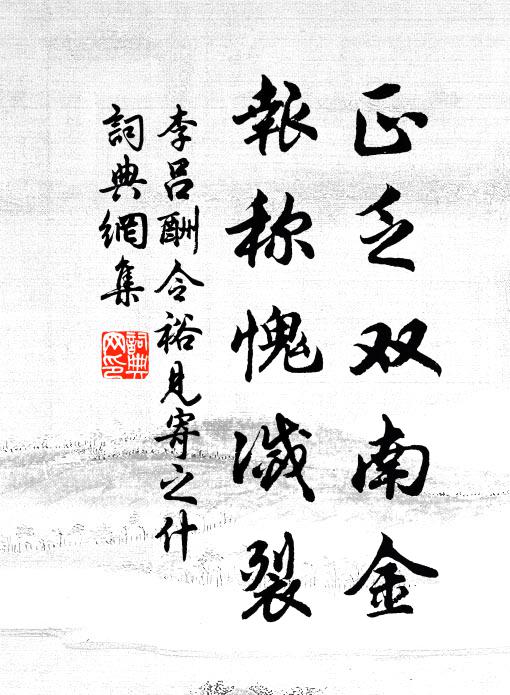 正乏双南金
報称愧滅裂
李呂酬令裕見寄之什
詞典網集
詞典
网印